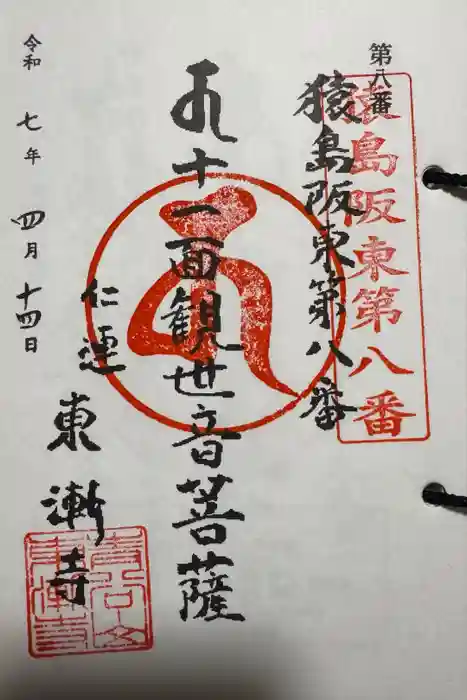 第八番
猿島阪東第八番
猿島阪東第八番
十一面観世音菩薩
仁連
東漸寺
令和 七年 四月 十四日